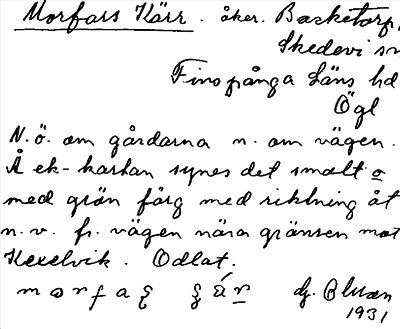 Morfars Kärr. åker. Backetorp,
Skedevi sn
Finspånga Läns hd
Ögl
N.ö. om gårdarna n. om vägen.
Å ek-kartan synes det smalt o
med grön färg med riktning åt
n.v. fr. vägen nära gränsen mot
Kexelvik. Odlat.
dj. Olsson
1931